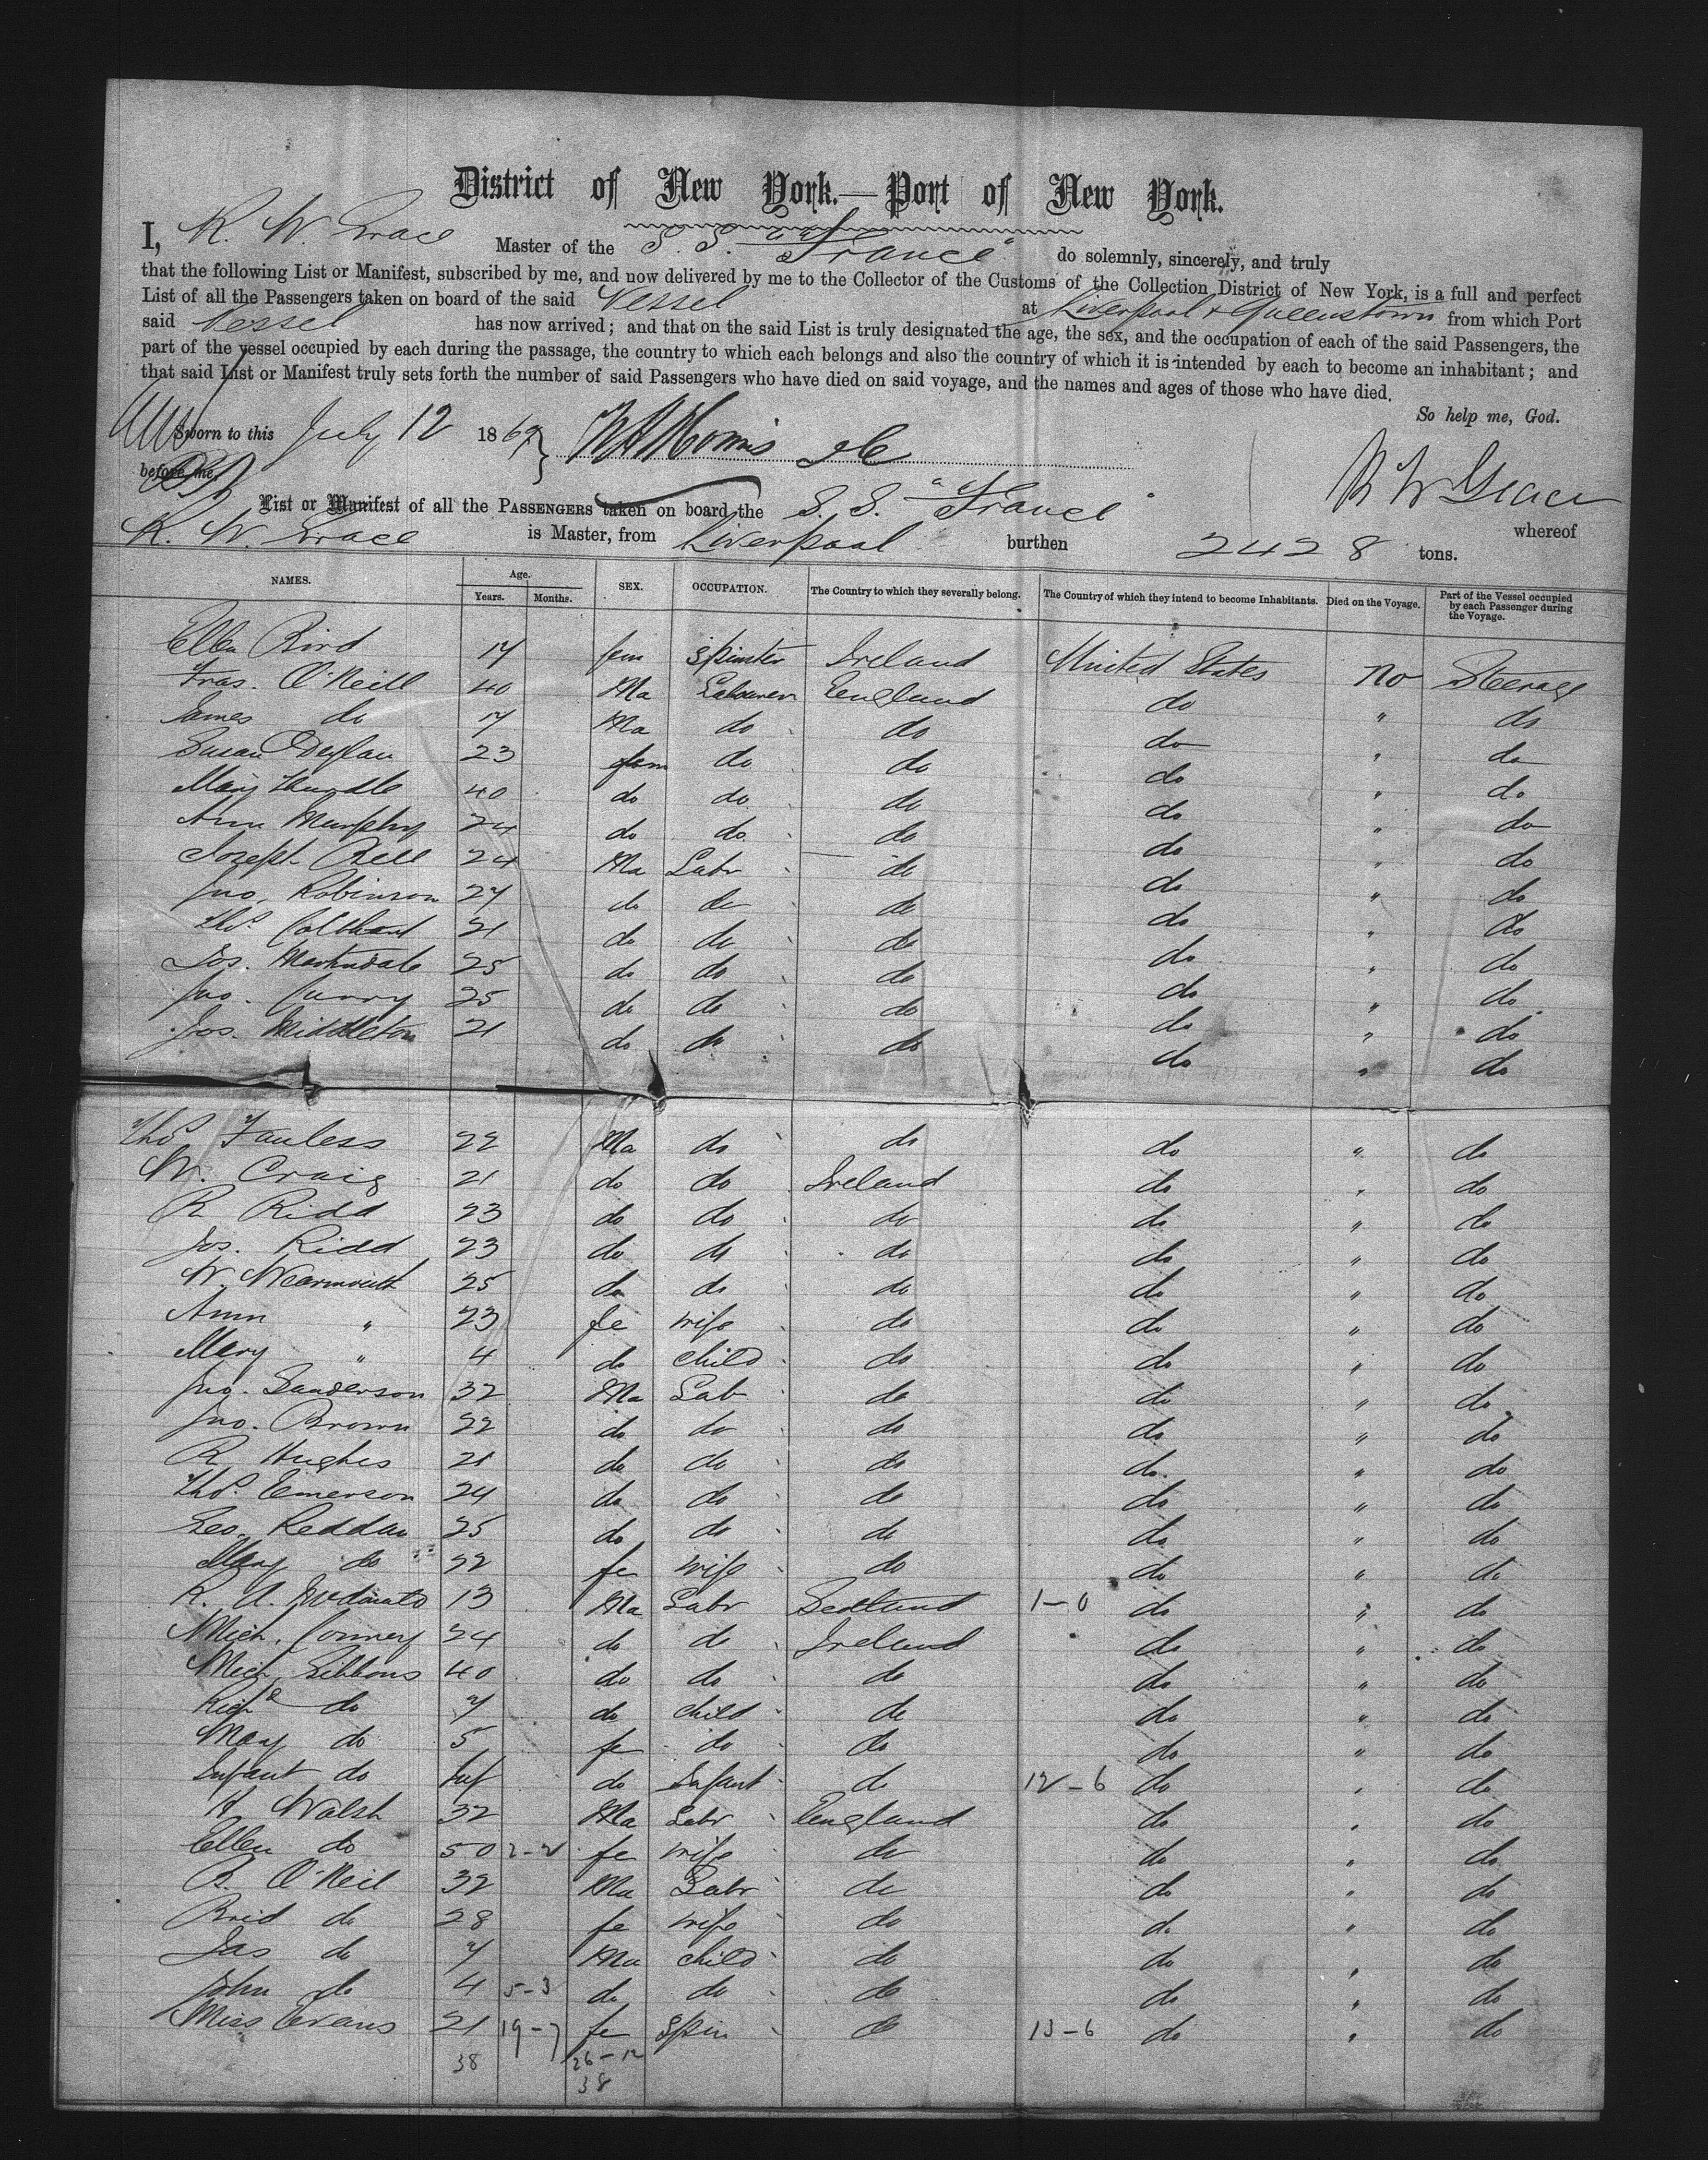 District of New York.—Port of New York.
I, R. W. Grace Master of the S. S. "France" do solemnly, sincerely, and truly
that the following List or Manifest, subscribed by me, and now delivered by me to the Collector of the Customs of the Collection District of New York, is a full and perfect
List of all the Passengers taken on board of the said Vessel at Liverpool & Queenstown from which Port
said Vessel has now arrived; and that on the said List is truly designated the age, the sex, and the occupation of each of the said Passengers, the
part of the vessel occupied by each during the passage, the country to which each belongs and also the country of which it is intended by each to become an inhabitant; and
that said List or Manifest truly sets forth the number of said Passengers who have died on said voyage, and the names and ages of those who have died.
So help me, God.
Sworn to this July 12 1869
before me,
R W Grace
List or Manifest of all the PASSENGERS taken on board the S. S. "France" whereof
R. W. Grace is Master, from Liverpool burthen 2428 tons.
NAMES. Age. Years. Months. SEX. OCCUPATION. The Country to which they severally belong. The Country of which they intend to become Inhabitants. Died on the Voyage. Part of the Vessel occupied by each Passenger during the Voyage.
Ellen Bird 17 fem Spinster Ireland United States no Steerage
Fras. O'Neill 40 Ma Labourer England do " do
James do 17 Ma do do do " do
Susan 23 fem do do do " do
Mary 40 do do do do " do
Ann Murphy 24 do do do do " do
Joseph Bell 24 Ma Labr do do " do
Jno. Robinson 27 do do do do " do
Thos. 21 do do do do " do
Jos. Martindale 25 do do do do " do
Jno. Curry 25 do do do do " do
Jos. Middleton 21 do do do do " do
Thos Fauless 22 Ma do do do " do
W. Craig 21 do do Ireland do " do
R Ridd 23 do do do do " do
Jos. Ridd 23 do do do do " do
W. Wearmouth 25 do do do do " do
Ann " 23 fe wife do do " do
Mary " 4 do child do do " do
Jno. Sanderson 32 Ma Lab do do " do
Jno. Brown 22 do do do do " do
R Hughes 21 do do do do " do
Thos. Emerson 24 do do do do " do
Geo. Reddan 25 do do do do " do
Mary do 22 fe wife do do " do
R. A. 13 Ma Labr Scotland 1-0 do " do
Mich. Conney 24 do do Ireland do " do
Mich. Gibbons 40 do do do do " do
Richd do 7 do child do do " do
Mary do 5 fe do do do " do
Infant do Inf do Infant do 12-6 do " do
H Walsh 32 Ma Labr England do " do
Ellen do 50 2-2 fe wife do do " do
B. O'Neil 32 Ma Labr do do " do
Brid do 28 fe wife do do " do
Jas do 7 Ma child do do " do
John do 4 5-3 do do do do " do
Miss Evans 21 19-7 fe Spin do 13-6 do " do
38 26-12
38